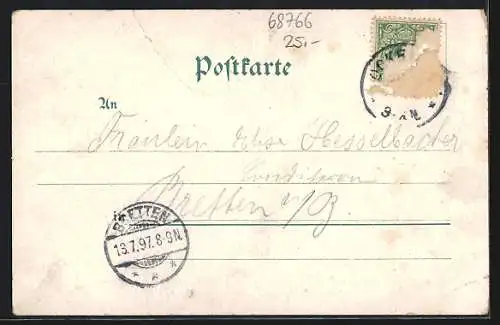 68766
25.-
Postkarte
An
Fräulein Else Hesselbacher
Conditorei
in Bretten i/B.
BRETTEN
13.7.97.8-9N.